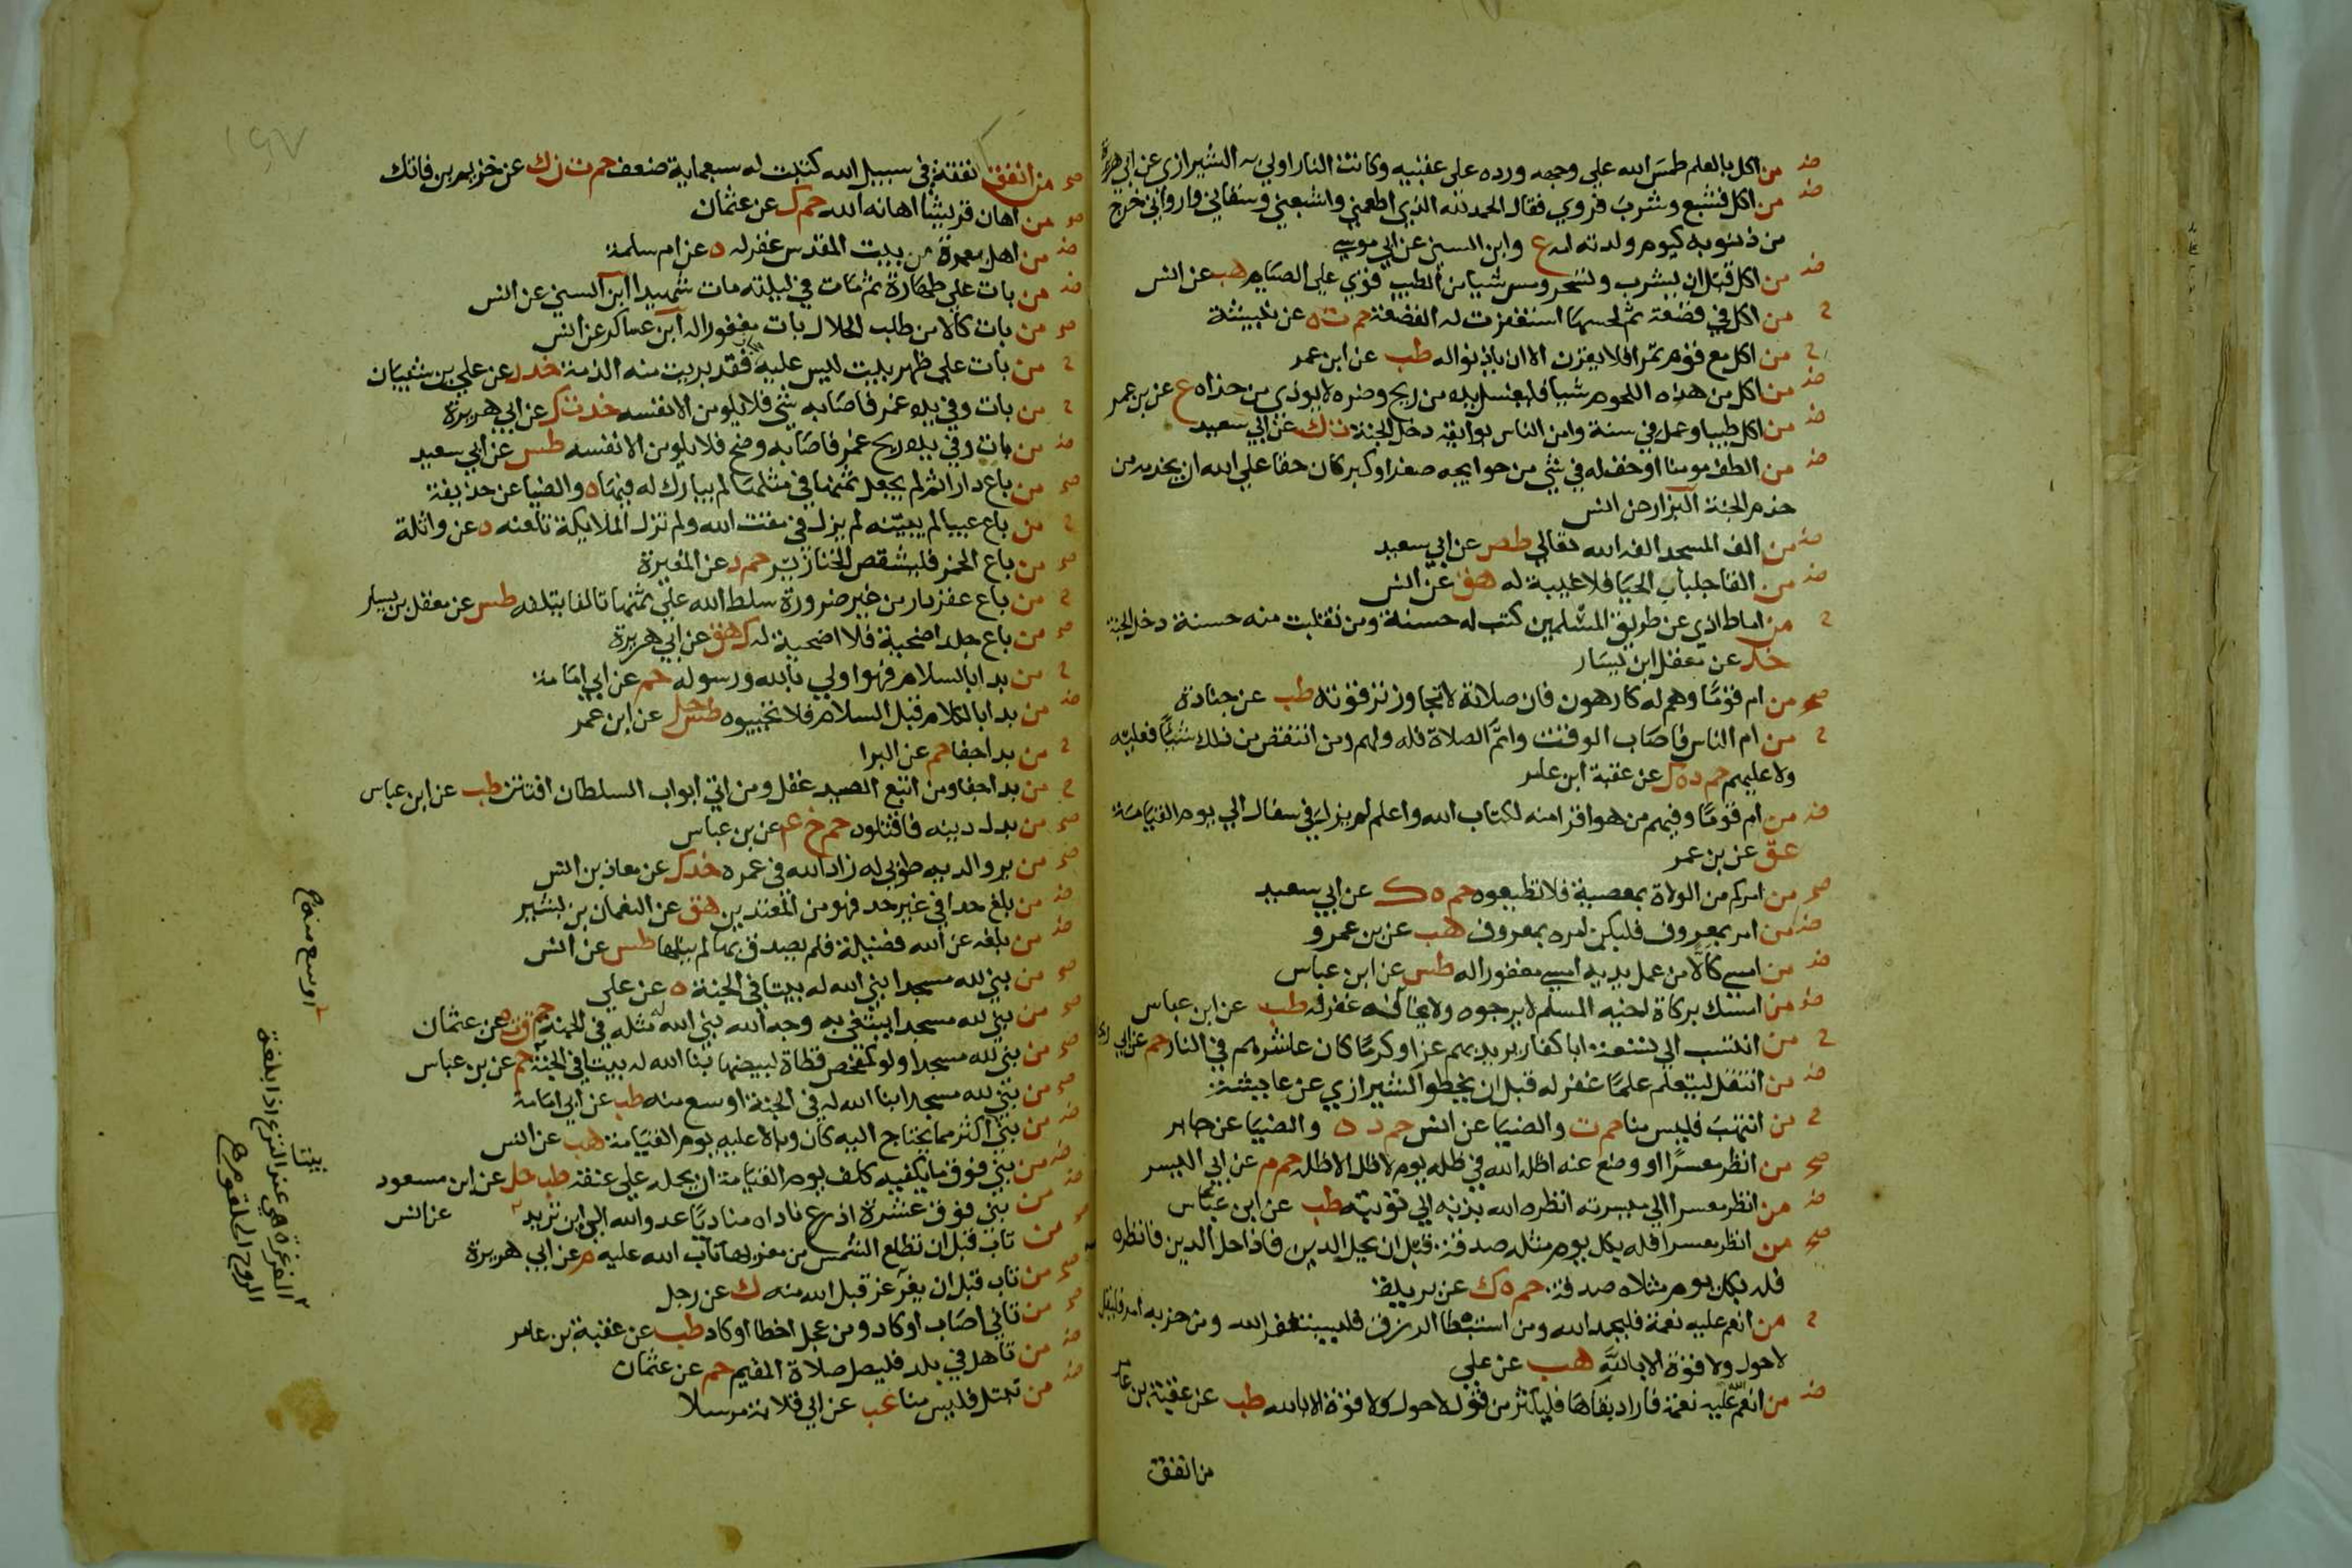 ض من اكل بالعلم طمس الله على وجهه ورده على عقبيه وكانت النار اولى به الشيرازي عن ابي هريرة
ض من اكل فشبع وشرب فروي فقال الحمد لله الذي اطعمني واشبعني وسقاني واروانى خرج
من ذنوبه كيوم ولدته امه ع وابن السني عن ابي موسى
ض من اكل قبل ان يشرب وتسحر ومس شيا من الطيب قوي على الصيام هب عن انس
ح من اكل في قصعة ثم لحسها استغفرت له القصعة حم ت ه عن نبيشة
ح من اكل مع قوم تمرا فلا يقرن الا ان ياذنوا له طب عن ابن عمر
ض من اكل من هذه اللحوم شيا فليغسل يده من ريح وضره لا يوذي من حذاه ع عن بن عمر
ض من اكل طيبا وعمل في سنة وامن الناس بوايقه دخل الجنة ت ك عن ابي سعيد
ض من الطف مومنا او خف له في شي من حوايجه صغر او كبر كان حقا على الله ان يخدمه من
خدم الجنة البزار عن انس
ض من الف المسجد الفه الله تعالى طص عن ابي سعيد
ض من القا جلباب الحيا فلا غيبة له هق عن انس
ح من اماط اذي عن طريق المسلمين كتب له حسنة ومن تقبلت منه حسنة دخل الجنة
خد عن معقل ابن يسار
صح من ام قوما وهم له كارهون فان صلاته لا تجاوز ترقوته طب عن جنادة
ح من ام الناس فاصاب الوقت واتم الصلاة فله ولهم ومن انتقص من ذلك شيا فعليه
ولا عليهم حم د ه ك عن عقبة ابن عامر
ض من ام قوما وفيهم من هو اقرا منه لكتاب الله واعلم لم يزل في سفال الي يوم القيامة
عق عن بن عمر
صح من امركم من الولاة بمعصية فلا تطيعوه حم ه ك عن ابي سعيد
ض من امر بمعروف فليكن امره بمعروف هب عن بن عمرو
ض من امسى كالا من عمل يديه امسى مغفورا له طس عن ابن عباس
ض من امسك بركاب اخيه المسلم لا يرجوه ولا يخافه غفر له طب عن ابن عباس
ح من انتسب الي تسعة ابا كفار يريد بهم عزا وكرما كان عاشرهم في النار حم عن ابي
ض من انتقل ليتعلم علما غفر له قبل ان يخطو الشيرازي عن عايشة
ح من انتهب فليس منا حم ت والضيا عن انس حم د ه والضيا عن جابر
صح من انظر معسرا او وضع عنه اظله الله في ظله يوم لا ظل الا ظله حم م عن ابي اليسر
ض من انظر معسرا الي ميسرته انظره الله بذنبه الي توبته طب عن ابن عباس
صح من انظر معسرا فله بكل يوم مثله صدقة قبل ان يحل الدين فاذا حل الدين فانظره
فله بكل يوم مثلاه صدقة حم ه ك عن بريدة
ح من انعم عليه نعمة فليحمد الله ومن استبطا الرزق فليستغفر الله ومن حزبه امر فليقل
لا حول ولا قوة الا بالله هب عن علي
ض من انعم الله عليه نعمة فاراد بقاها فليكثر من قول لا حول ولا قوة الا بالله طب عن عقبة بن عامر
من انفق
١٤٧
صح من انفق نفقة في سبيل الله كتبت له سبعماية ضعف حم ت ن ك عن خزيم بن فاتك
صح من اهان قريشا اهانه الله حم ك عن عثمان
ض من اهل بعمرة من بيت المقدس غفر له ه عن ام سلمة
ض من بات على طهارة ثم مات في ليلته مات شهيدا ابن السني عن انس
صح من بات كالا من طلب الحلال بات مغفورا له ابن عساكر عن انس
ح من بات على ظهر بيت ليس عليه فقد بريت منه الذمة خد د عن علي بن شيبان
ح من بات وفي يده غمر فاصابه شي فلا يلومن الا نفسه خد ت ك عن ابي هريرة
ض من بات وفي يده ريح غمر فاصابه وضح فلا يلومن الا نفسه طس عن ابي سعيد
صح من باع دارا ثم لم يجعل ثمنها في مثلها لم يبارك له فيها ه والضيا عن حذيفة
ح من باع عيبا لم يبينه لم يزل في مقت الله ولم تزل الملايكة تلعنه ه عن واثلة
صح من باع الخمر فليشقص الخنازير حم د عن المغيرة
ح من باع عقر دار من غير ضرورة سلط الله على ثمنها تالفا يتلفه طس عن معقل بن يسار
صح من باع جلد اضحية فلا اضحية له ك هق عن ابي هريرة
ح من بدا بالسلام فهو اولى بالله ورسوله حم عن ابي امامة
ض من بدا بالكلام قبل السلام فلا تجيبوه طس حل عن ابن عمر
ح من بدا جفا حم عن البرا
ح من بدا جفا ومن اتبع الصيد غفل ومن اتى ابواب السلطان افتتن طب عن ابن عباس
صح من بدل دينه فاقتلوه حم خ عم عن بن عباس
صح من بر والديه طوبى له زاد الله في عمره خد ك عن معاذ بن انس
ض من بلغ حدا في غير حد فهو من المعتدين هق عن النعمان بن بشير
ض من بلغه عن الله فضيلة فلم يصدق بها لم ينلها طس عن انس
صح من بني لله مسجدا بنى الله له بيتا في الجنة ه عن علي
صح من بني لله مسجدا يبتغي به وجه الله بني الله له مثله في الجنة حم ق ت ه عن عثمان
صح من بني لله مسجدا ولو كمفحص قطاة لبيضها بنا الله له بيتا في الجنة حم عن بن عباس
صح من بني لله مسجدا بنا الله له في الجنة اوسع منه طب عن ابي امامة
ض من بني اكثر مما يحتاج اليه كان وبالا عليه يوم القيامة هب عن انس
ض من بني فوق ما يكفيه كلف يوم القيامة ان يحمله على عنقه طب حل عن ابن مسعود
ض من بني فوق عشرة اذرع ناداه مناديا عدو الله الى اين تريد عن انس
صح من تاب قبل ان تطلع الشمس من مغربها تاب الله عليه م عن ابي هريرة
صح من تاب قبل ان يغرغر قبل الله منه ك عن رجل
صح من تانى اصاب او كاد ومن عجل اخطا او كاد طب عن عقبة بن عامر
ض من تاهل في بلد فليصل صلاة المقيم حم عن عثمان
ض من تبتل فليس منا عب عن ابي قلابة مرسلا
اوسع منه
الغرغرة هي عند النزع اذا بلغت
الروح الحلقوم